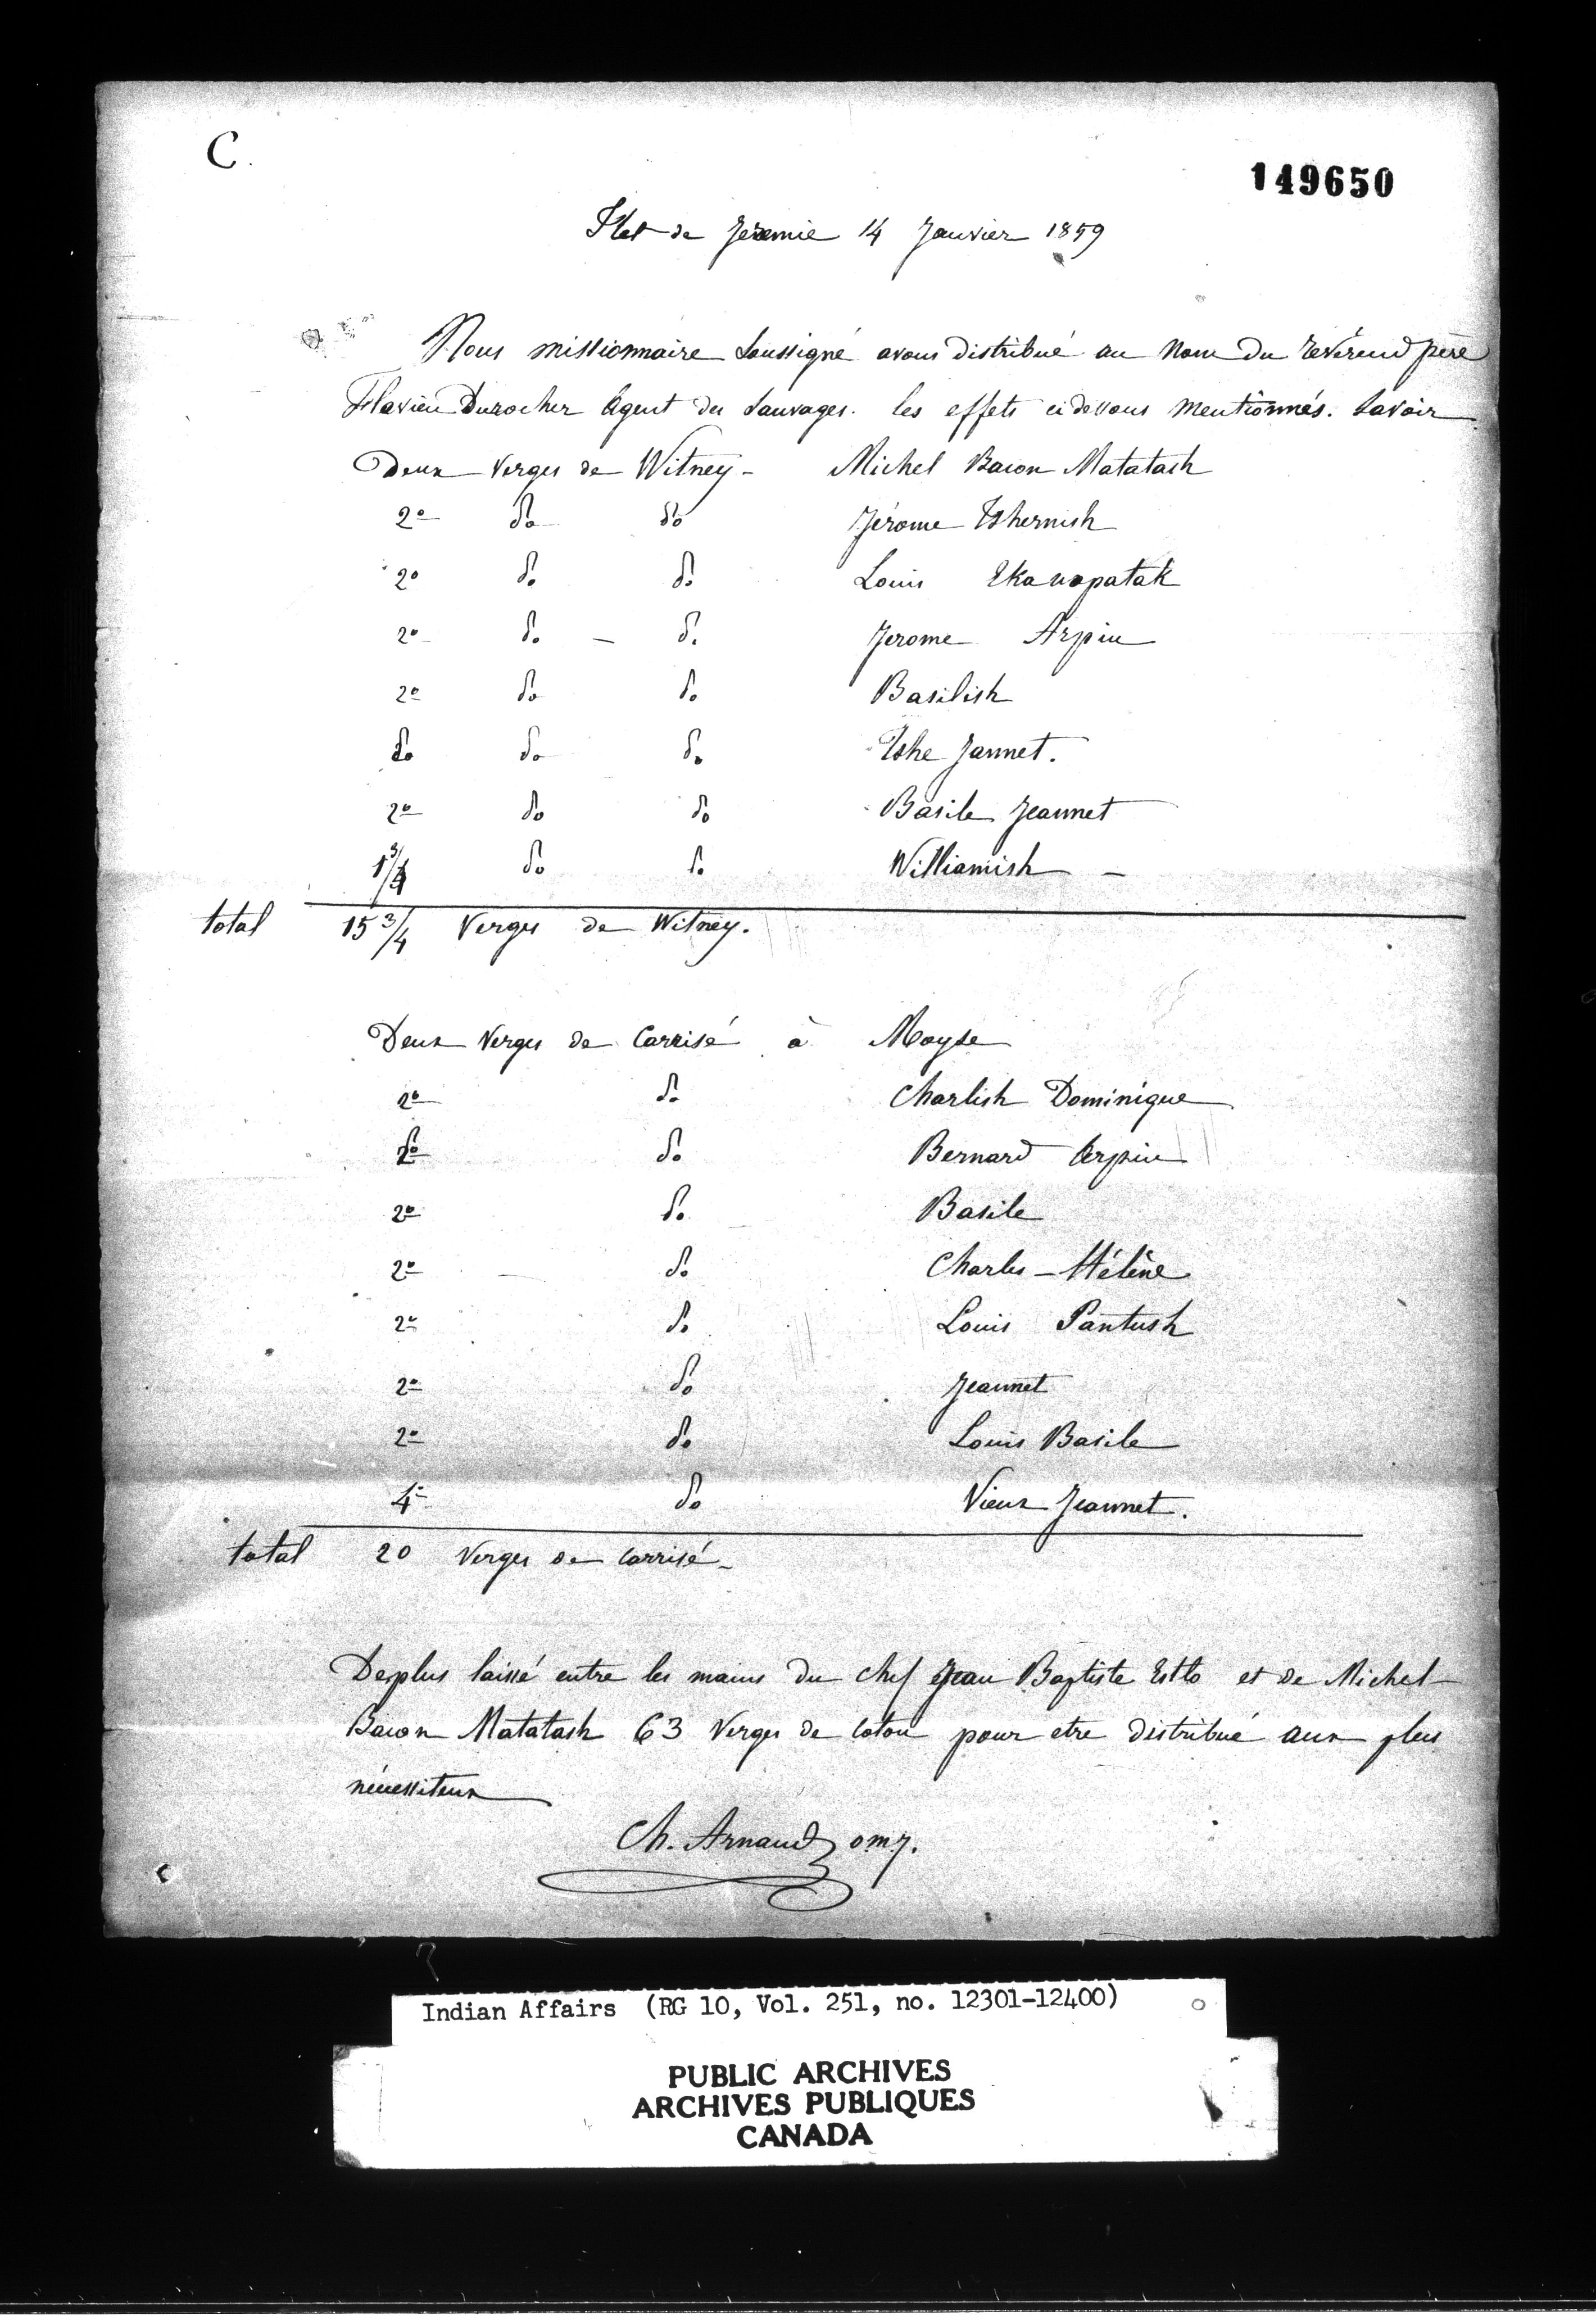 C.
149650
Ilet de Jeremie 14 Janvier 1859
Nous missionnaire soussigné avons distribué au nom du révérend père
Flavien Durocher Agent des Sauvages. les effets cidessous mentionnés. Savoir
Deux verges de Witney - Michel Bacon Matatash
2o do do Jérome Tshernish
2o do do Louis Ekanapatak
2o do - do Jerome Arpin
2o do do Basilish
do do do Tshe Jannet.
2o do do Basile Jeannet
1 3/4 do do Williamish -
total 15 3/4 Verges de Witney.
Deux Verges de Carrisé à Moyse
2o do Charlish Dominique
2o do Bernard Arpin
2o do Basile
2o do Charles - Hélène
2o do Louis Pantush
2o do Jeannet
2o do Louis Basile
4o do Vieux Jeannet.
total 20 Verges de Carrisé -
Deplus laissé entre les mains du chef Jean Baptiste Estlo et de Michel
Bacon Matatash 63 Verges de coton pour etre distribué aux plus
nécessiteux
Ch. Arnaud omj.
Indian Affairs (RG 10, Vol. 251, no. 12301-12400)
PUBLIC ARCHIVES
ARCHIVES PUBLIQUES
CANADA